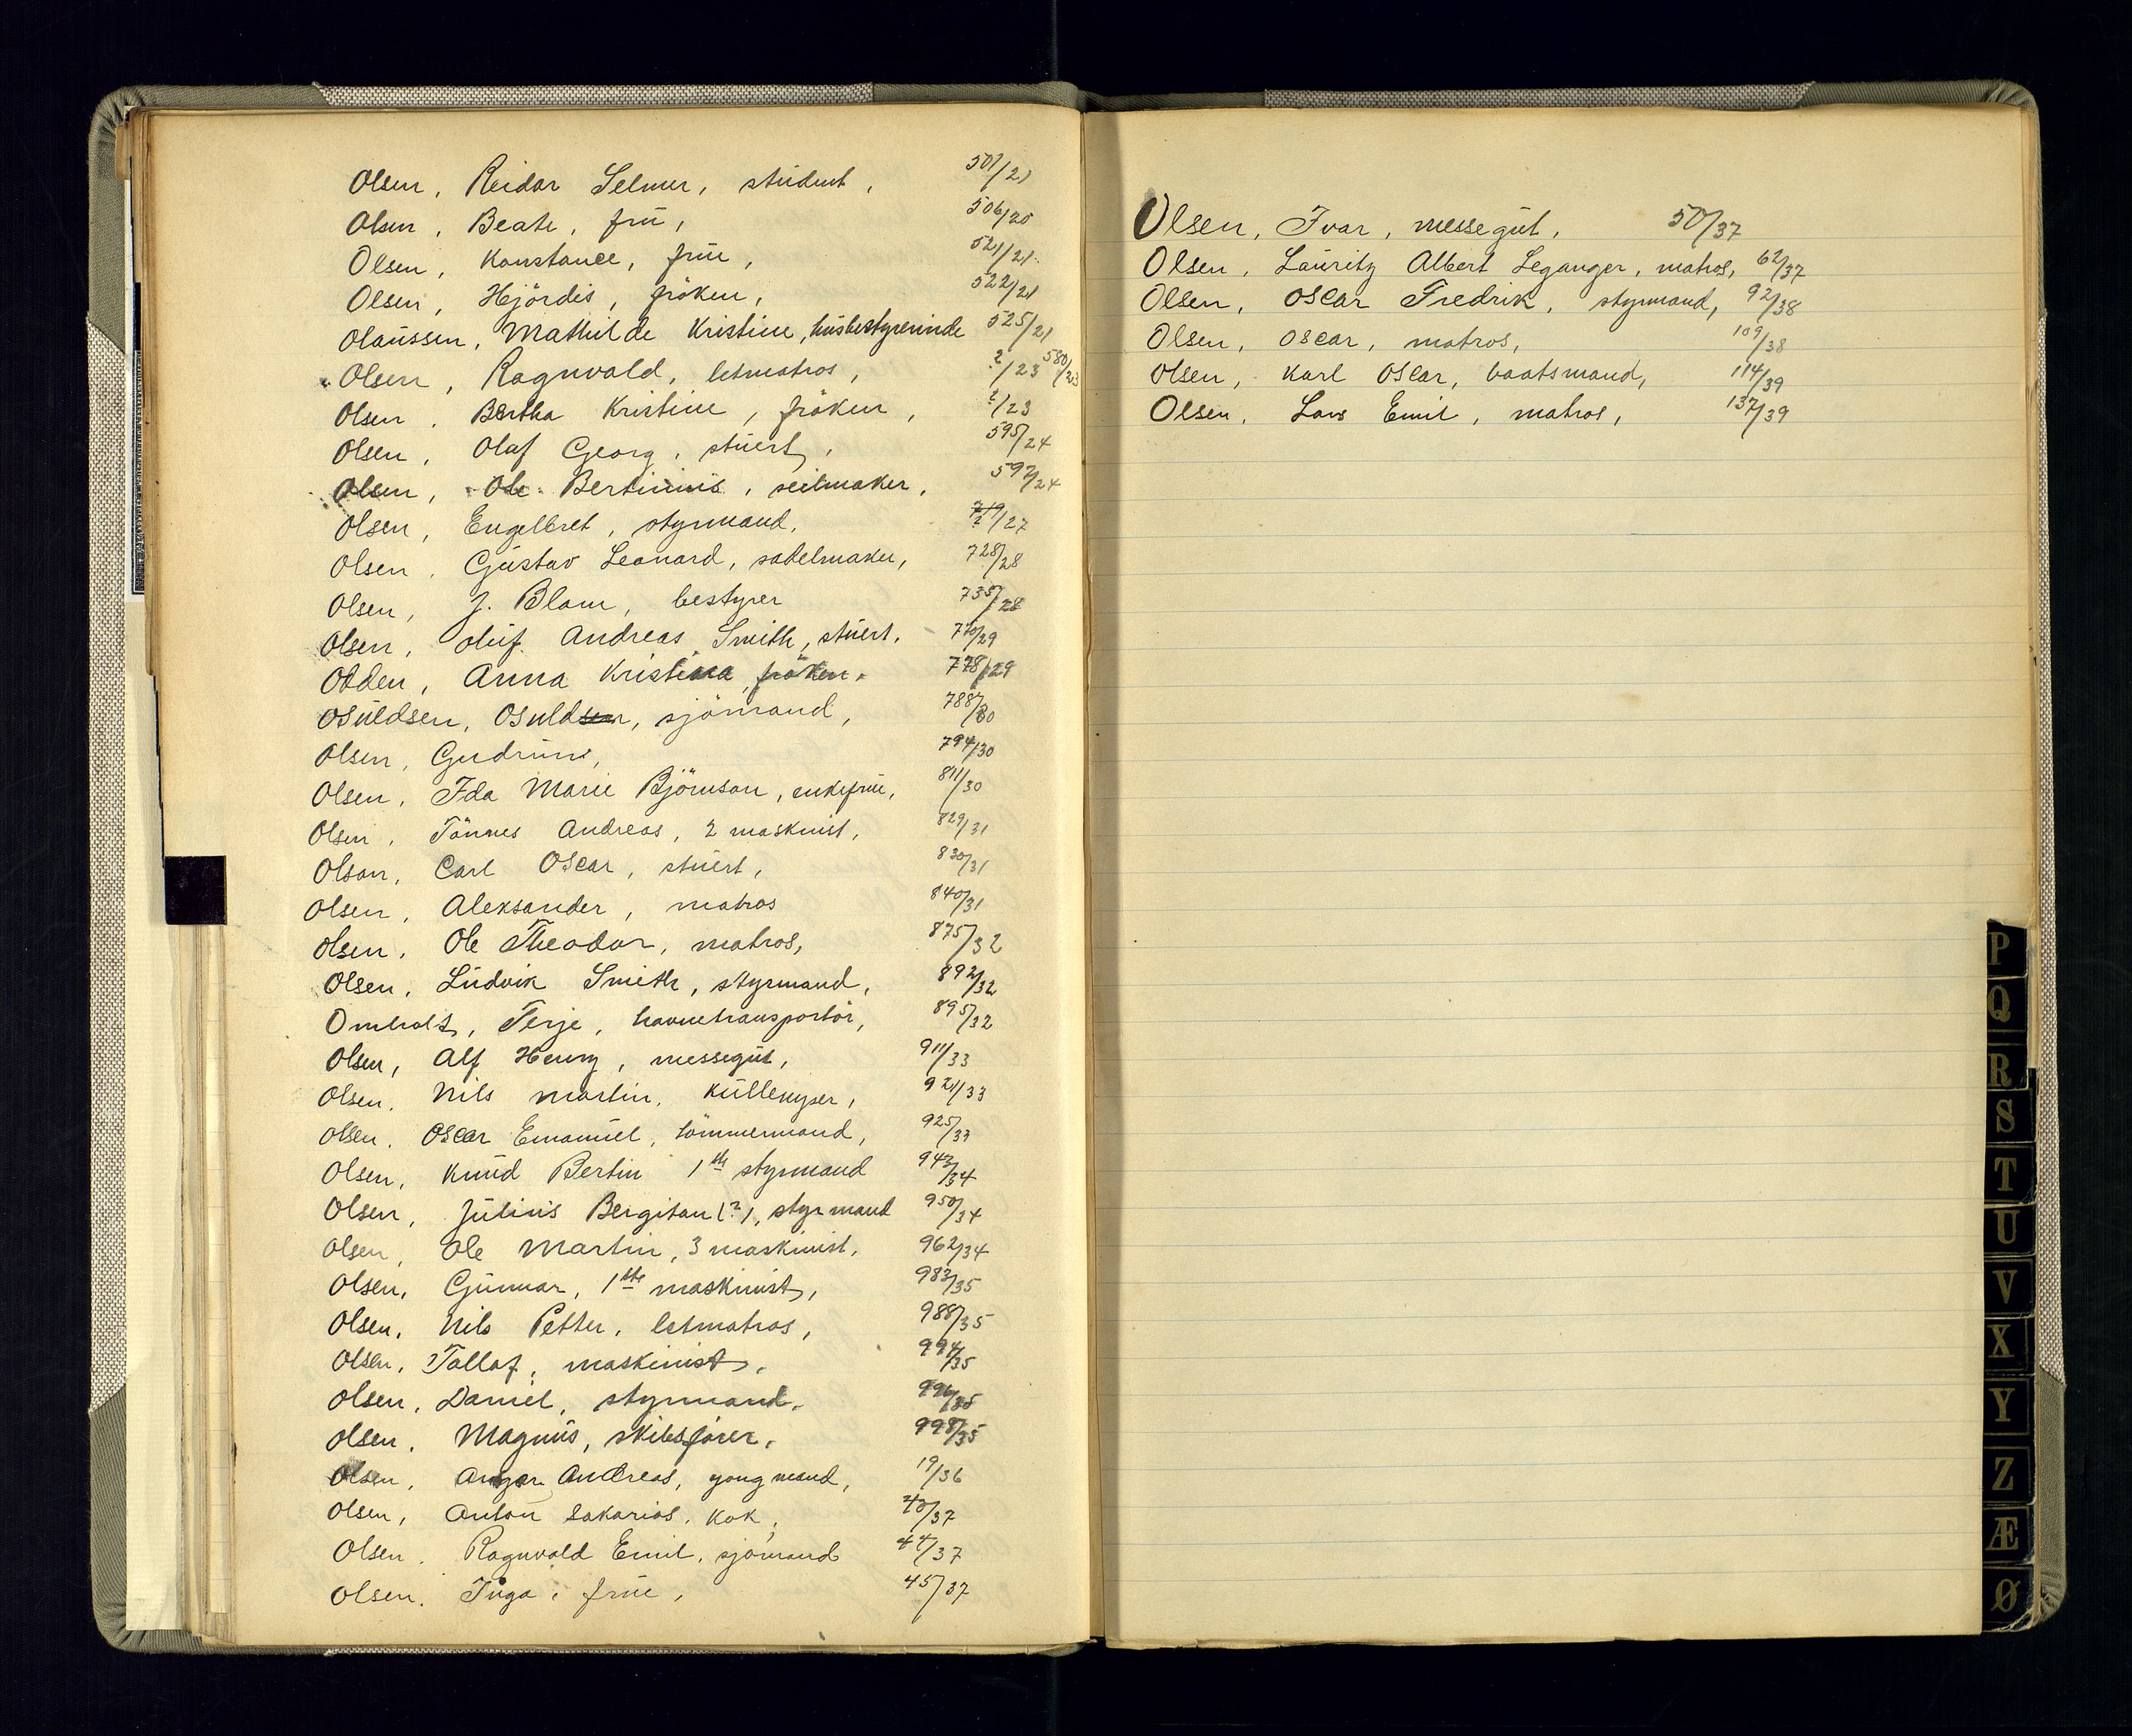 Olsen, Reidar Selmer, student, 501/21
Olsen, Beate, frü, 506/20
Olsen, Konstance, früe, 521/21
Olsen, Hjördis, fröken, 522/21
Olaüssen, Mathilde Kristine, hüsbestyrerinde 525/21
Olsen, Ragnvald, letmatros, ?/23 580/23
Olsen, Bertha Kristine, fröken, ?/23
Olsen, Olaf Georg, stüert, 595/24
Olsen, Ole Bertinius, seilmaker, 597/24
Olsen, Engelbret, styrmand, 719/27
Olsen, Güstav Leonard, sadelmaker, 728/28
Olsen, J. Blom, bestyrer 735/28
Olsen, Olüf Andreas Smith, stüert. 770/29
Odden, Anna Kristina, fröken. 778/29
Osüldsen, Osuldsen, sjömand, 788/30
Olsen, Gudrün, 794/30
Olsen, Ida Marie Björnson, enkefrüe, 811/30
Olsen, Tönnes Andreas, 2 maskinist, 829/31
Olson, Carl Oscar, stüert, 830/31
Olsen, Aleksander, matros 840/31
Olsen, Ole Theodor, matros, 875/32
Olsen, Lüdvik Smith, styrmand, 892/32
Omholt, Terje, havnetransportör, 895/32
Olsen, Alf Henry, messegüt, 911/33
Olsen, Nils Martin, küllemper, 921/33
Olsen, Oscar Emanüel, tömmermand, 925/33
Olsen, Knüd Bertin 1ste styrmand 943/34
Olsen, Jüliüs Bergitan (?), styrmand 950/34
Olsen, Ole Martin, 3 maskinist, 962/34
Olsen, Günnar, 1ste maskinist, 983/35
Olsen, Nils Petter, letmatros, 988/35
Olsen, Tallaf, maskinist, 994/35
Olsen, Daniel, styrmand, 996/35
Olsen, Magnüs, skibsfører, 998/35
Olsen, Andreas, yongmand, 19/36
Olsen, Anton Sakarias, kok, 43/37
Olsen, Ragnvald Emil, sjömand 44/37
Olsen, Inga, früe, 45/37
Olsen, Ivar, messegüt, 50/37
Olsen, Laüritz Albert Leganger, matros, 62/37
Olsen, Oscar Fredrik, styrmand, 92/38
Olsen, Oscar, matros, 109/38
Olsen, Karl Oscar, baatsmand, 114/39
Olsen, Lars Emil, matros, 137/39
P
Q
R
S
T
U
V
X
Y
Z
Æ
Ø